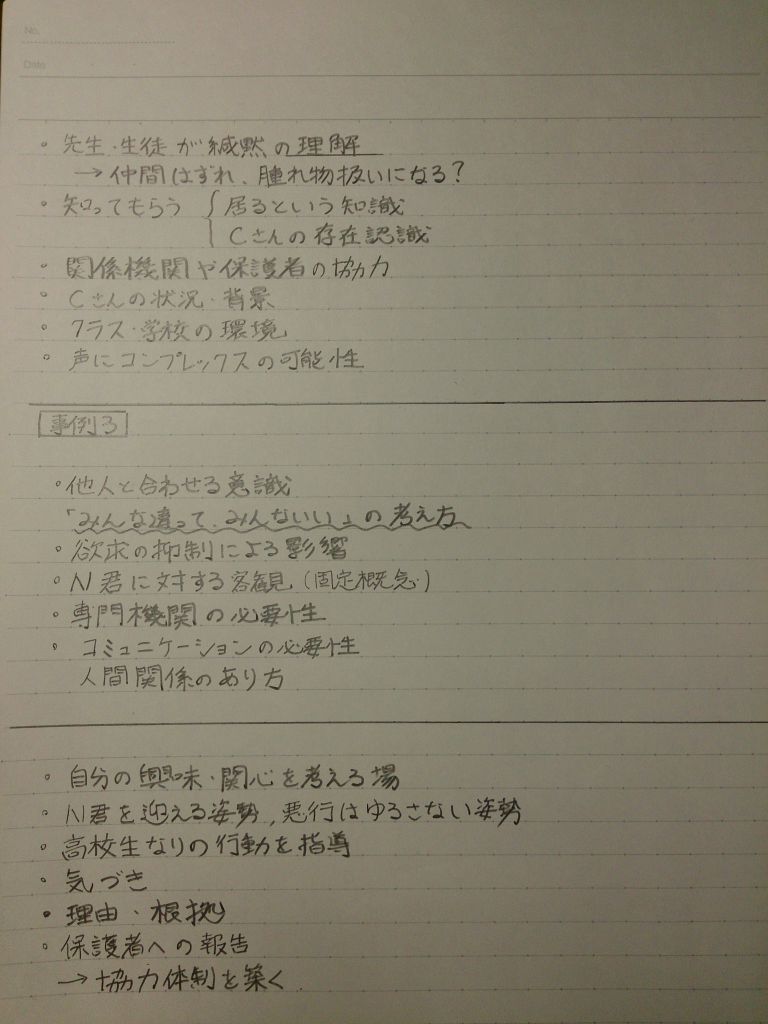 No.
Date
・先生・生徒が緘黙の理解
→仲間はずれ、腫れ物扱いになる?
・知ってもらう { 居るという知識
Cさんの存在認識
・関係機関や保護者の協力
・Cさんの状況・背景
・クラス・学校の環境
・声にコンプレックスの可能性
事例3
・他人と合わせる意識
「みんな違って、みんないい」の考え方
・欲求の抑制による影響
・N君に対する客観(固定概念)
・専門機関の必要性
・コミュニケーションの必要性
人間関係のあり方
・自分の興味・関心を考える場
・N君を迎える姿勢,悪行はゆるさない姿勢
・高校生なりの行動を指導
・気づき
・理由・根拠
・保護者への報告
→協力体制を築く